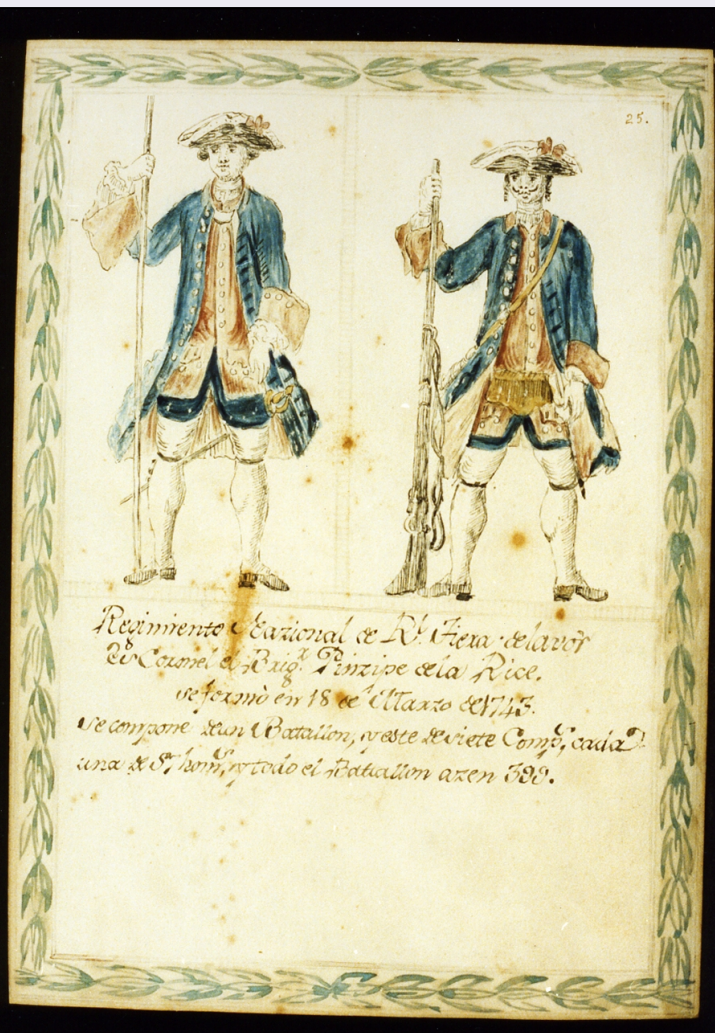 25.
Regimiento Nazional de R.l Tiera delavòr
Es Coronel el Brig.r Prinzipe dela Rice.
se formò en 18 de Marzo de 1743.
se compone de un Batallon, y este de siete Comp.s, cada
una de 57 hom.s, y todo el Batallon azen 399.